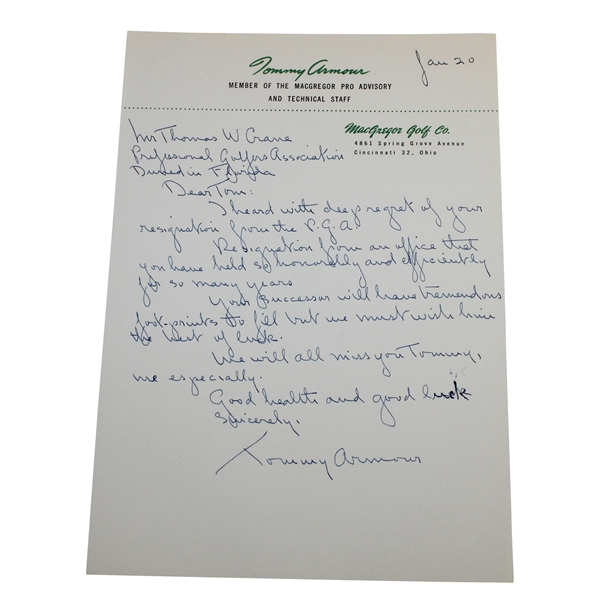 Tommy Armour
Jan 20
MEMBER OF THE MACGREGOR PRO ADVISORY
AND TECHNICAL STAFF
MacGregor Golf Co.
4861 Spring Grove Avenue
Cincinnati 32, Ohio
Mr Thomas W Crane
Professional Golfers Association
Dunedin Florida
Dear Tom:
I heard with deep regret of your
resignation from the P.G.A.
Resignation from an office that
you have held so honorably and efficiently
for so many years
Your successor will have tremendous
foot-prints to fill but we must wish him
the best of luck.
We will all miss you Tommy,
me especially.
Good health and good luck
Sincerely,
Tommy Armour